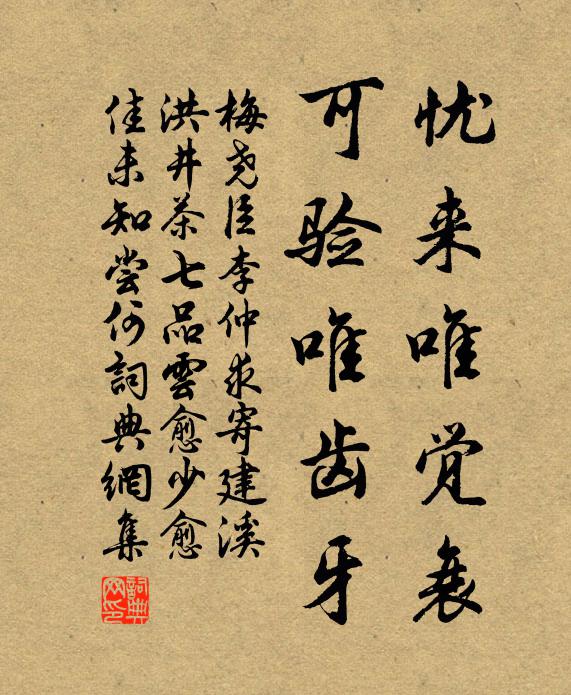 忧来唯觉衰
可验唯齿牙
梅尧臣李仲求寄建溪
洪井茶七品雲愈少愈
佳未知尝何詞典網集
詞典网印